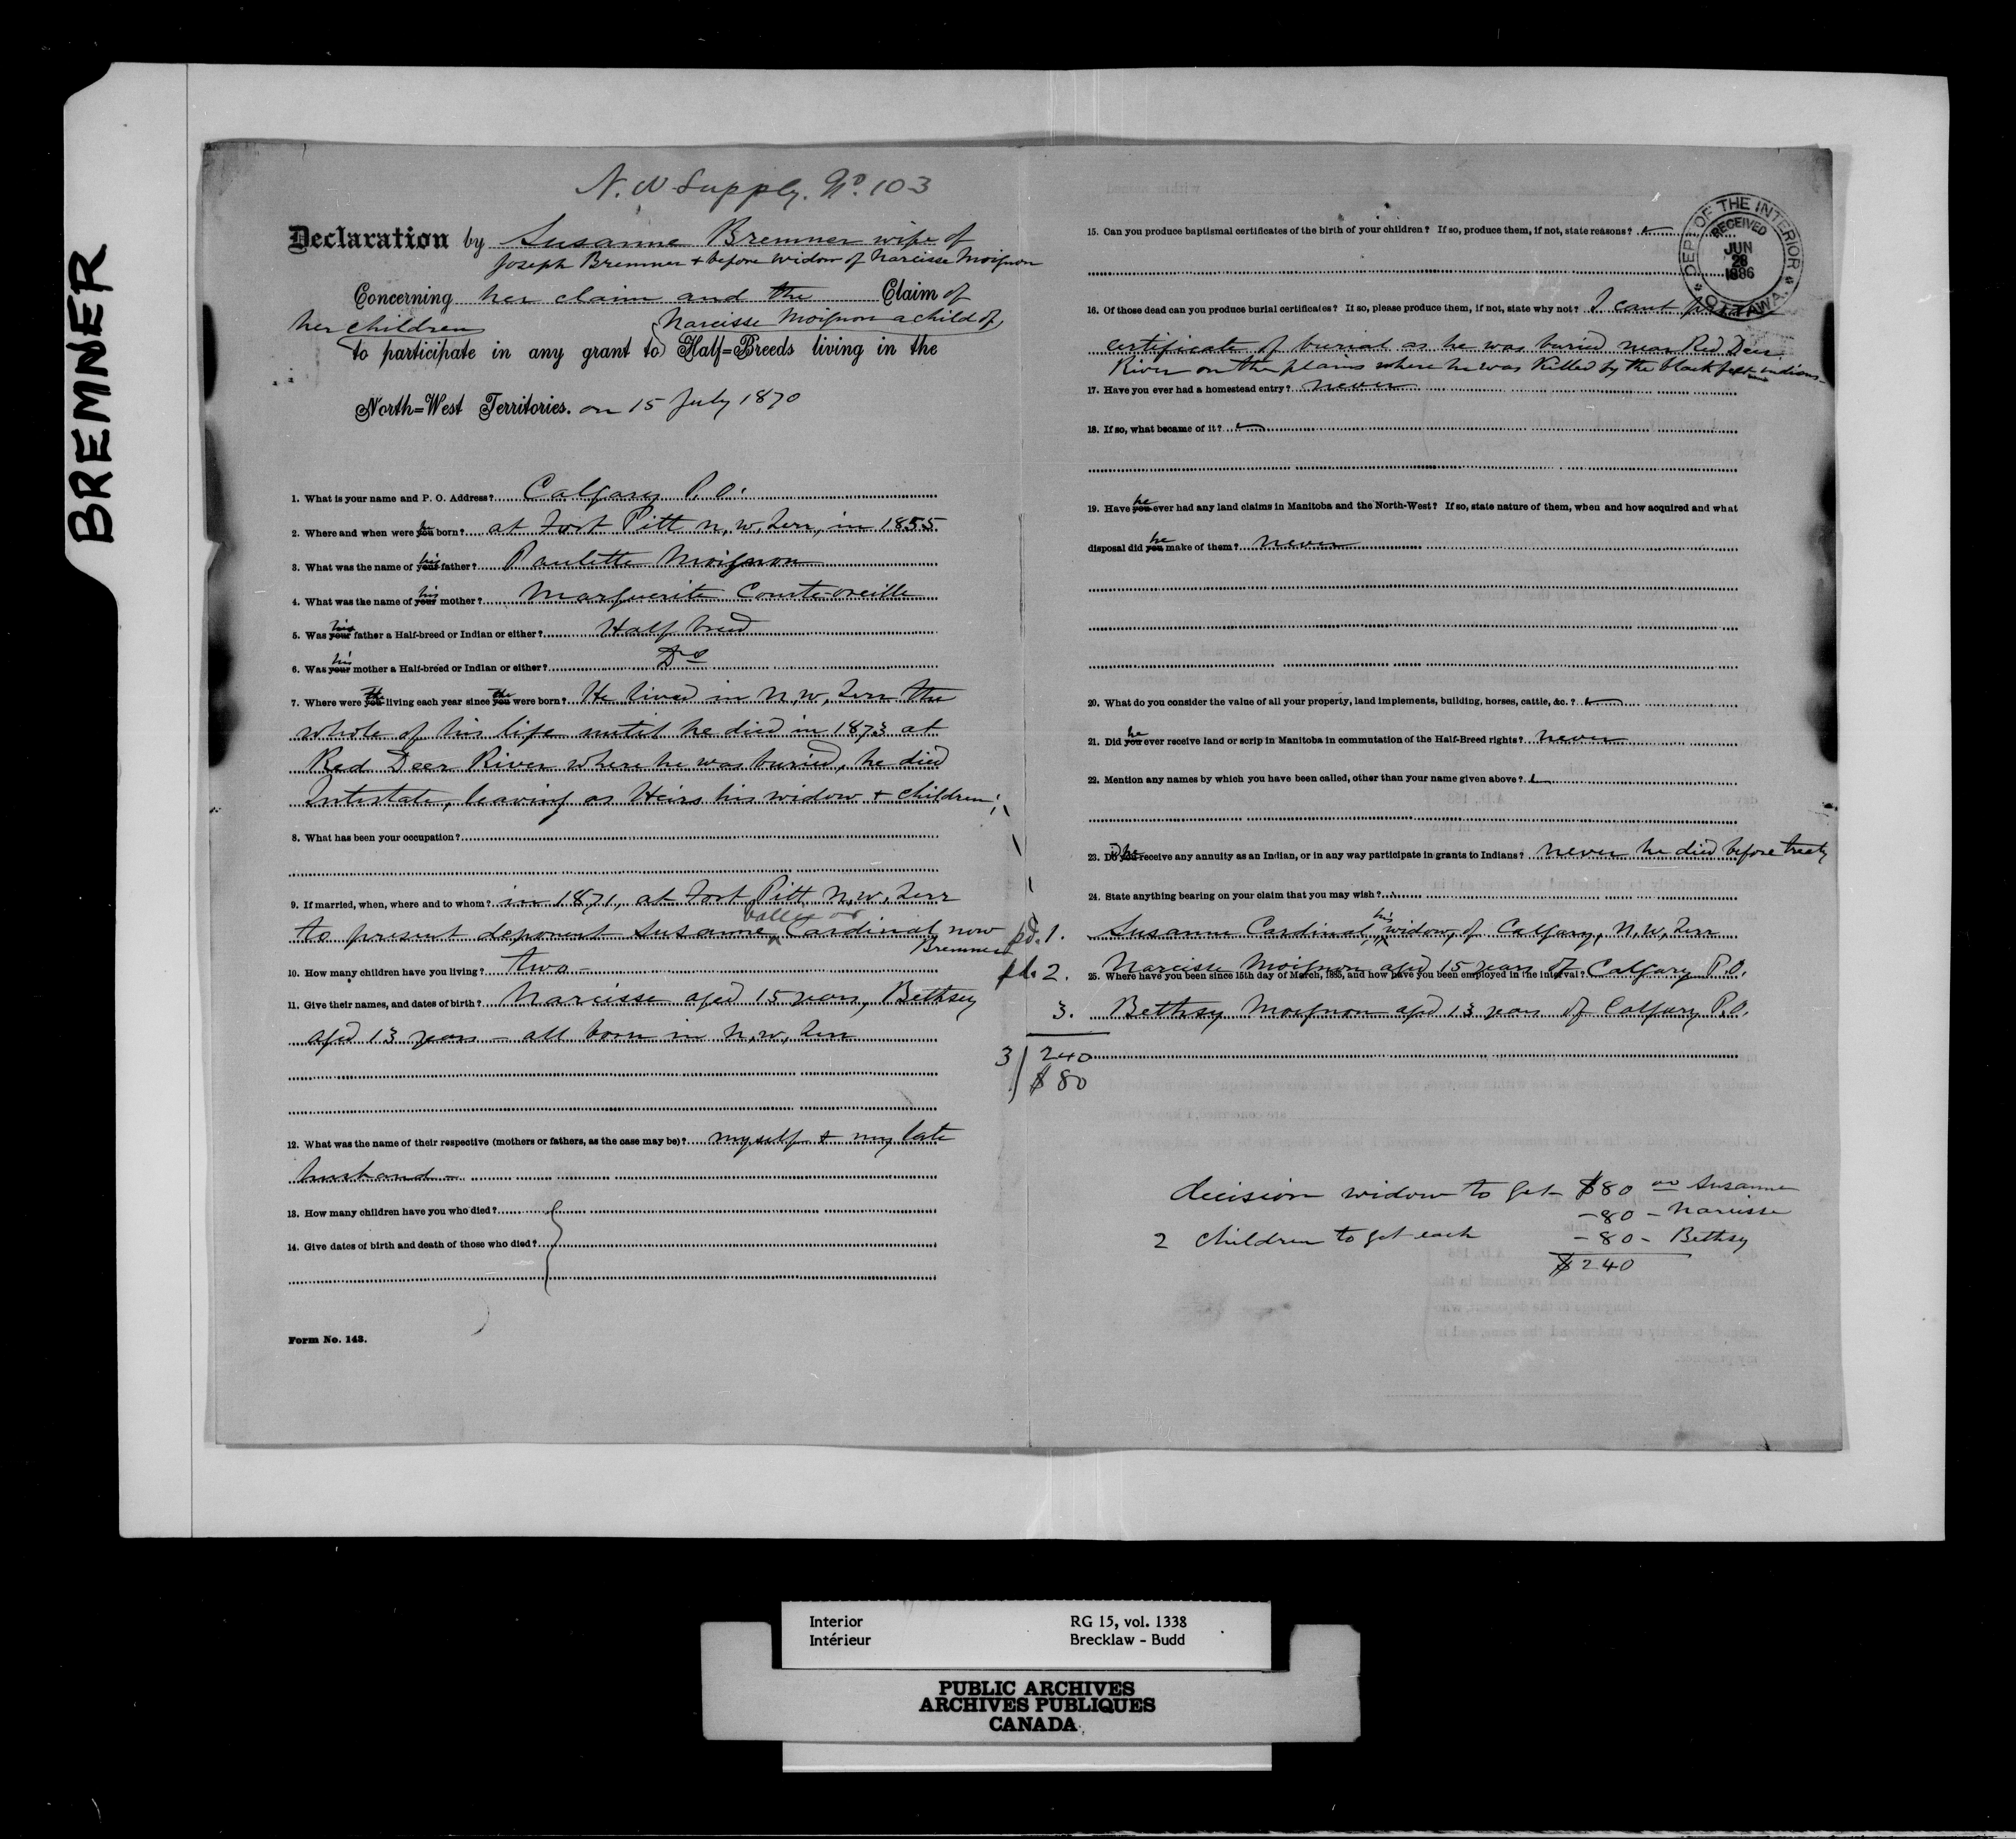 BREMNER
N. W Supply. No. 103
Declaration by Susanne Bremner wife of
Joseph Bremner + before widow of Narcisse Moignon
Concerning her claim and the Claim of
her children Narcisse Moignon a child of
to participate in any grant to Half=Breeds living in the
North=West Territories. on 15 July 1870
1. What is your name and P. O. Address? Calgary P. O.
2. Where and when were you he born? at Fort Pitt N, W, Terr, in 1855
3. What was the name of your his father? Paulette Moignon
4. What was the name of your his mother? Marguerite Courte-oreille
5. Was your his father a Half-breed or Indian or either? Half breed
6. Was your his mother a Half-breed or Indian or either? Do
7. Where were you he living each year since you he were born? He lived in N, W, Terr the
whole of his life until he died in 1873 at
Red Deer River where he was buried, he died
Intestate, leaving as Heirs his widow + children;
8. What has been your occupation?
9. If married, when, where and to whom? in 1871, at Fort Pitt N, W, Terr
to present deponent Susanne Cardinal now
Bremner
10. How many children have you living? two -
11. Give their names, and dates of birth? Narcisse aged 15 years, Bethsey
aged 13 years - all born in N, W, Terr
12. What was the name of their respective (mothers or fathers, as the case may be)? myself + my late
husband -
13. How many children have you who died?
14. Give dates of birth and death of those who died?
Form No. 143.
15. Can you produce baptismal certificates of the birth of your children? If so, produce them, if not, state reasons?
DEPT OF THE INTERIOR
RECEIVED
JUN
28
1886
OTTAWA
16. Of those dead can you produce burial certificates? It so, please produce them, if not, state why not? I cant
certificate of burial as he was buried near Red Deer
River on the plains where he was killed by the black feet indians -
17. Have you ever had a homestead entry? never
18. If so, what became of it?
19. Have you he ever had any land claims in Manitoba and the North-West? If so, state nature of them, when and how acquired and what
disposal did you he make of them? never
20. What do you consider the value of all your property, land implements, building, horses, cattle, &c. ?
21. Did you he ever receive land or scrip in Manitoba in commutation of the Half-Breed rights? never
22. Mention any names by which you have been called, other than your name given above?
23. Do you he receive any annuity as an Indian, or in any way participate in grants to Indians? never he died before treaty
24. State anything bearing on your claim that you may wish?
pd. 1. Susanne Cardinal, his widow, of Calgary, N, W, Terr
2. Narcisse Moignon aged 15 years of Calgary P.O.
25. Where have you been since 15th day of March, 1885, and how have you been employed in the interval?
3. Bethsy Moignon aged 13 years of Calgary P.O.
3 240
$ 80
decision widow to get $80 Susanne
-80 - Narcisse
2 children to get each -80 - Bethsy
$240
Interior RG 15, vol. 1338
Intérieur Brecklaw - Budd
PUBLIC ARCHIVES
ARCHIVES PUBLIQUES
CANADA